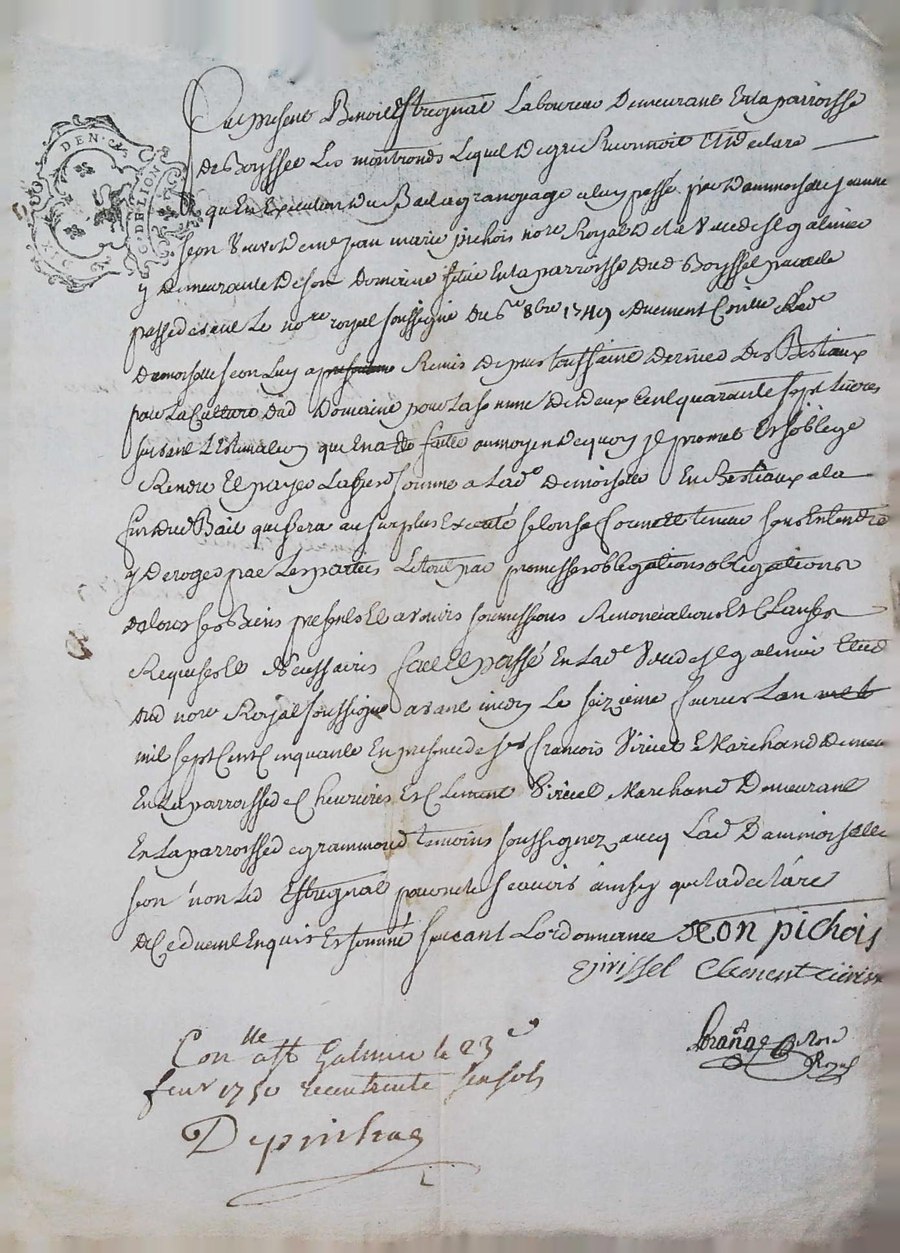 GEN. DE LION
DEN.
Fut present Benoit Estregnat Laboureur Demeurant En la parroisse
de Boysset Les montronds Lequel De gré Reconnoit Et Declare
qu'En Execution Du Bail a grangeage a luy passé par Dammoiselle jeanne
seon Veuve De me Jean marie pichois nore Royal De la Ville de st galmier
y Demeurante De son Domaine situé En la parroisse dud Boysset par acte
passé devant Le nore royal soussigné Du 8bre 1749 duement Controllé Lade
Damoiselle seon Luy a Remis Depuis toussaint Dernier Des Bestiaux
pour La Culture dud Domaine pour La somme De Deux Cent quarante sept Livres
suivant L'Estimation qui En a été faitte au moyen De quoy jl promet Et s'oblige
Rendre Et payer La susd somme a Lade Demoiselle En Bestiaux a la
fin dud Bail qui sera au surplus Executé selon sa forme Et teneur sans Entendre
y Deroger par Les parties Le tout par promesses obligations obligations
de tous ses Biens presents Et avenirs soumissions Renonciations Et Clauses
Requises Et Necessaires fait Et passé En Lade Ville de st galmier Etude
dud nore Royal soussigné avant midy Le seizieme fevrier L'an
mil sept Cent Cinquante En presence de sr françois Viricel Marchand Demeu
En La parroisse de Chevrieres Et Clement Viricel Marchand Demeurant
En La parroisse de grammond temoins soussignez avec Lade Dammoiselle
seon non Led Estregnat pour ne scavoir ainsy qu'il a declaré
De Ce duement Enquis Et sommé suivant L'ordonnance seon pichois
Clement
nore
Royal
Conlle a st Galmier le 23e
feuv 1750 recu trente six sols